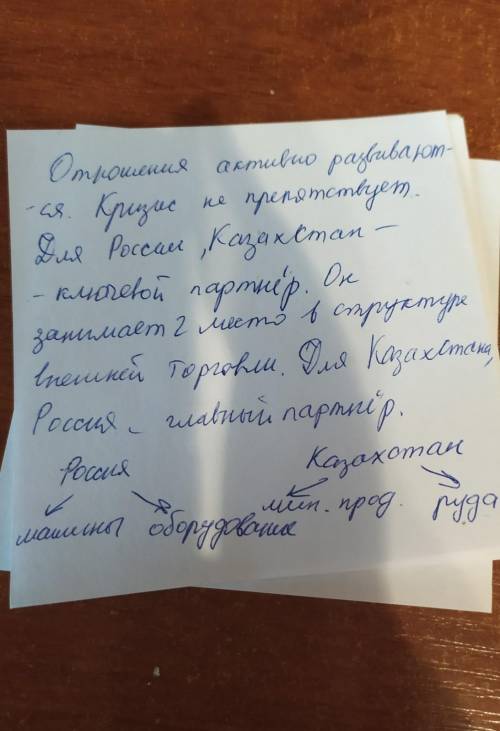 Отношения активно развивают-
-ся. Кризис не препятствует.
Для России, Казахстан –
- ключевой партнёр. Он
занимает 2 место в структуре
внешней торговли. Для Казахстана,
Россия – главный партнёр.
Россия Казахстан
машины оборудование мин. прод. руда